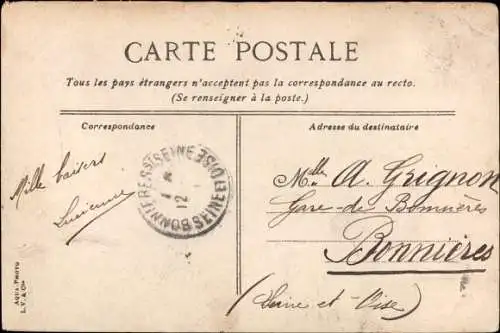 CARTE POSTALE
Tous les pays étrangers n'acceptent pas la correspondance au recto.
(Se renseigner à la poste.)
Correspondance
Mille baisers
Lucienne
BONNIÈRES S SEINE
SEINE ET OISE
12
Adresse du destinataire
Melle A. Grignon
Gare de Bonnières
Bonnières
(Seine et Oise)
AQUA-PHOTO
L. V. & Cie